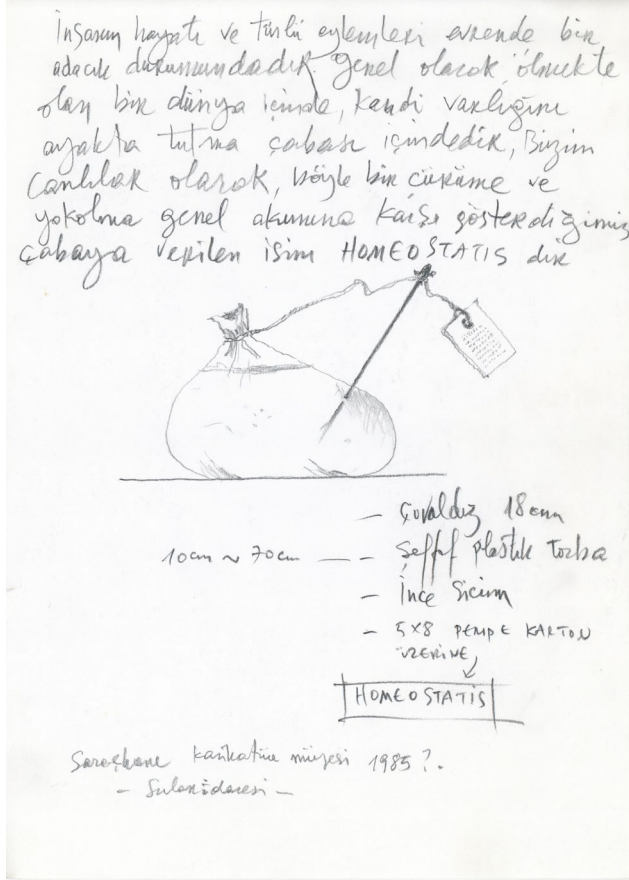 İnsanın hayatı ve türlü eylemleri evrende bir
adacık durumundadır. genel olarak ölmekte
olan bir dünya içinde, kendi varlığını
ayakta tutma çabası içindedir, Bizim
Canlılar olarak, böyle bir çürüme ve
yokolma genel akımına karşı gösterdiğimiz
çabaya verilen isim HOMEOSTATIS dir
– Çuvaldız 18cm
10cm ~ 70cm — – Şeffaf plastik torba
– İnce Sicim
– 5x8 PEMPE KARTON
ÜZERİNE
HOMEOSTATİS
Saraçhane karikatür müzesi 1985?.
– Sular idaresi –